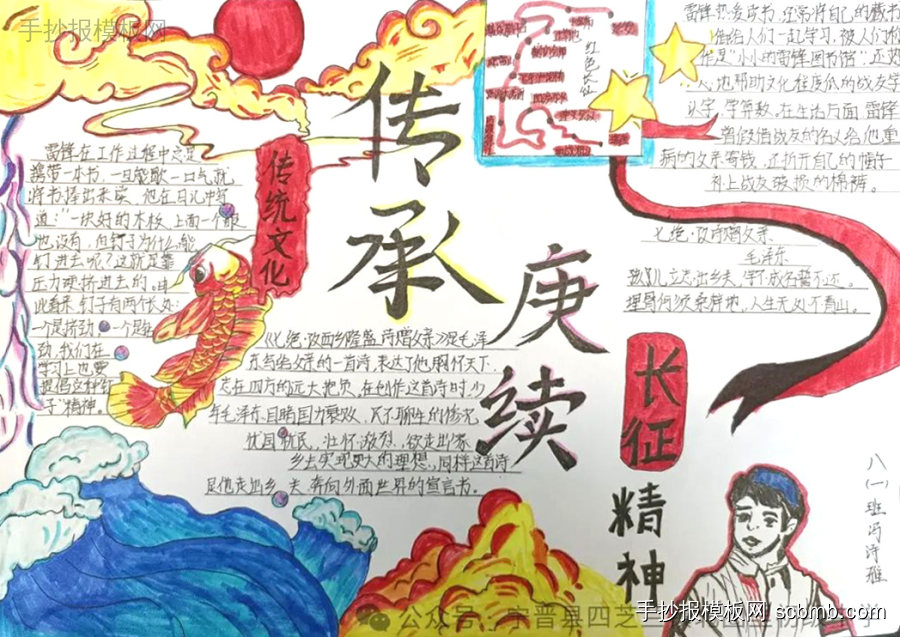 手抄报模板网
传承
庚续
传统文化
长征
精神
红色长征
雷锋热爱读书,还常将自己的藏书
借给人们一起学习,被人们称
作是"小小的雷锋图书馆";还热
人,也帮助文化程度低的战友学
认字,学算数。在生活方面,雷锋
曾假借战友的名义给他重
病的父亲寄钱,还拆开自己的棉
补上战友破损的棉裤。
七绝·改诗赠父亲
毛泽东
孩儿立志出乡关,学不成名誓不还。
埋骨何须桑梓地,人生无处不青山。
雷锋在工作过程中总是
携带一本书,一旦能歇一口气就
将书择出来读,他在日记中写
道:"一块好的木板,上面一个眼
也没有,但钉子为什么能
钉进去呢?这就是靠
压力硬挤进去的。由
此看来,钉子有两个长处:
一个是挤劲,一个是钻
劲,我们在
学习上也要
提倡这种钉
子"精神。
《七绝·改西乡隆盛诗赠父亲》是毛泽
东写给父亲的一首诗,表达了他胸怀天下、
志在四方的远大抱负。在创作这首诗时,少
年毛泽东目睹国力衰败、民不聊生的情况
忧国忧民,壮怀激烈,欲走出家
乡去实现更大的理想。同样这首诗
是他走出乡关、奔向外面世界的宣言书。
八(一)班冯诗雅
公众号:宁晋县四芝
手抄报模板网 scbmb.com